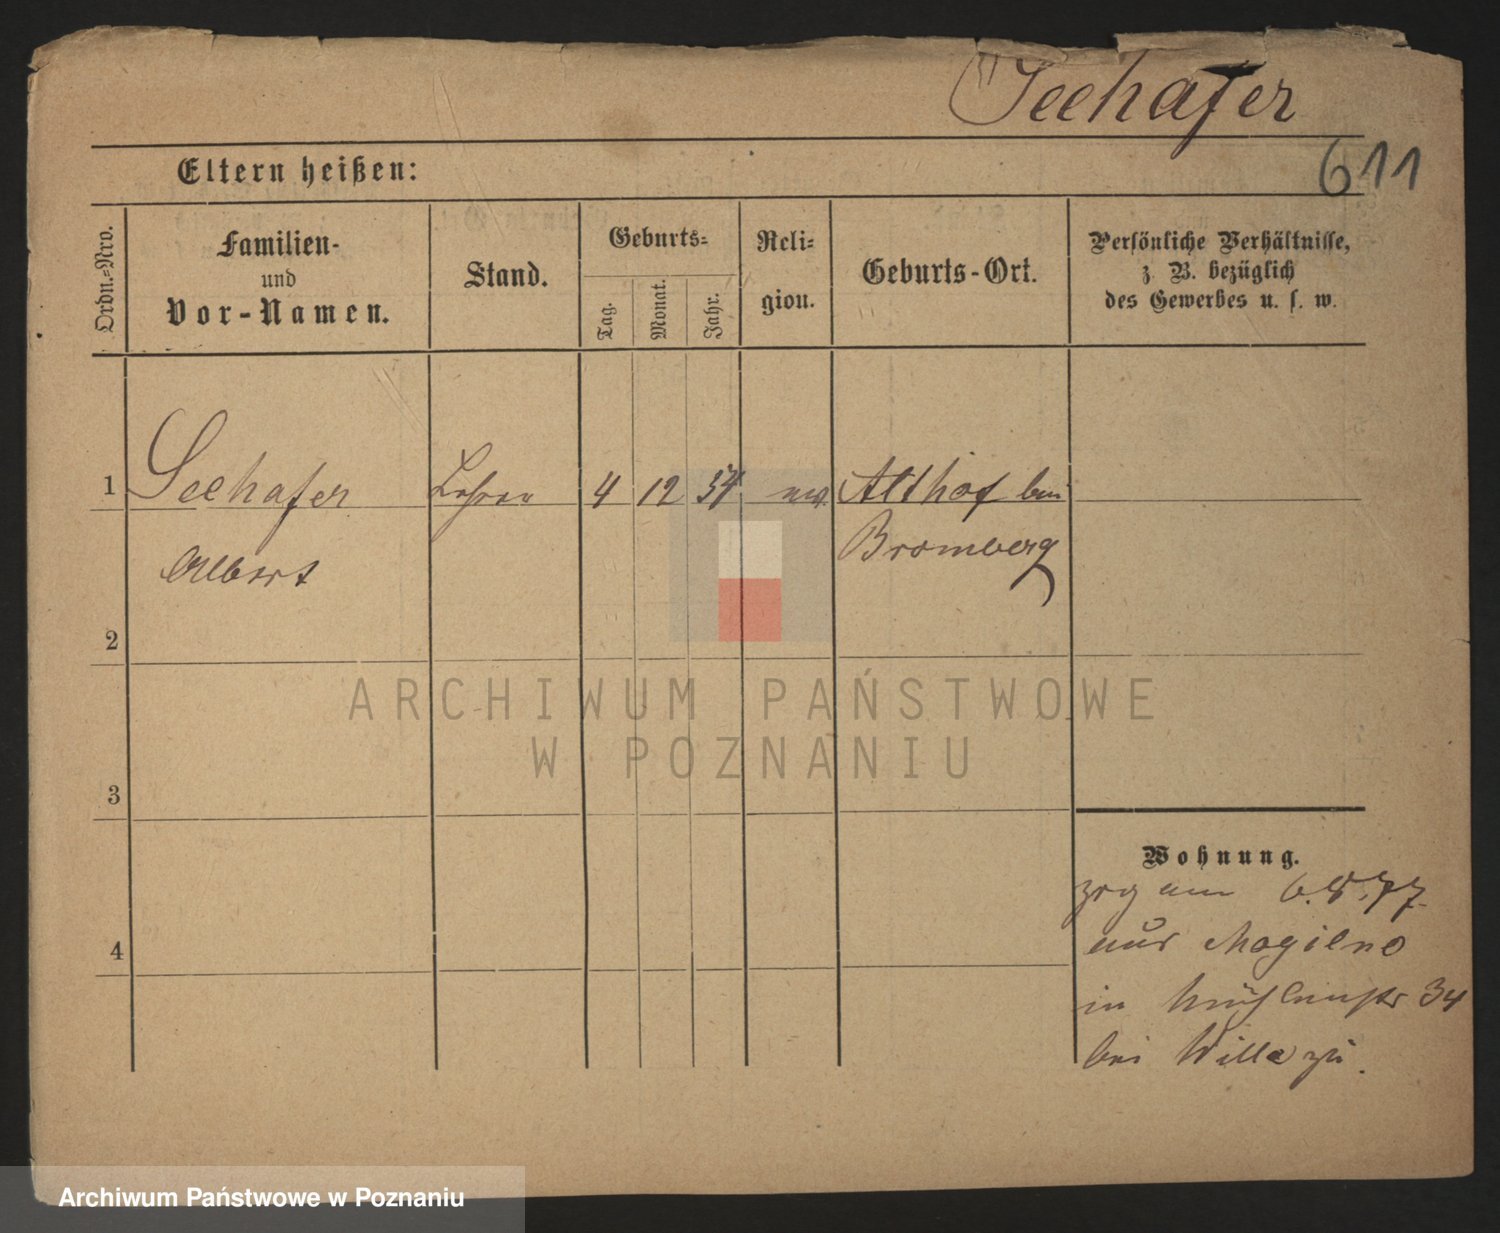 Seehafer
611
Eltern heißen:
Ordn.-Nro.
Familien-
und
Vor-Namen.
Stand.
Geburts-
Tag.
Monat.
Jahr.
Reli-
gion.
Geburts-Ort.
Persönliche Verhältnisse,
z. B. bezüglich
des Gewerbes u. s. w.
1 Seehafer Lehrer 4 12 54 ev. Althof bei
Albert Bromberg
2
3
4
Wohnung.
zog am 6. 8. 77.
aus Mogilno
in Mühlenstr 34
bei Wille zu.
ARCHIWUM PAŃSTWOWE
W POZNANIU
Archiwum Państwowe w Poznaniu